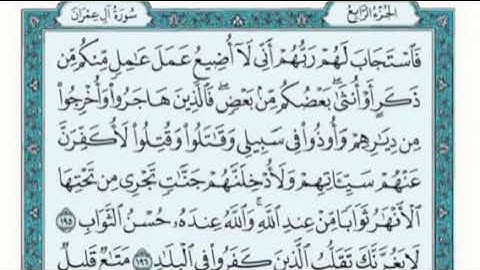 الجزء الرابع
سورة آل عمران
فَٱسۡتَجَابَ لَهُمۡ رَبُّهُمۡ أَنِّي لَآ أُضِيعُ عَمَلَ عَٰمِلٖ مِّنكُم مِّن
ذَكَرٍ أَوۡ أُنثَىٰۖ بَعۡضُكُم مِّنۢ بَعۡضٖۖ فَٱلَّذِينَ هَاجَرُواْ وَأُخۡرِجُواْ
مِن دِيَٰرِهِمۡ وَأُوذُواْ فِي سَبِيلِي وَقَٰتَلُواْ وَقُتِلُواْ لَأُكَفِّرَنَّ
عَنۡهُمۡ سَيِّـَٔاتِهِمۡ وَلَأُدۡخِلَنَّهُمۡ جَنَّٰتٖ تَجۡرِي مِن تَحۡتِهَا
ٱلۡأَنۡهَٰرُ ثَوَابٗا مِّنۡ عِندِ ٱللَّهِۚ وَٱللَّهُ عِندَهُۥ حُسۡنُ ٱلثَّوَابِ ١٩٥
لَا يَغُرَّنَّكَ تَقَلُّبُ ٱلَّذِينَ كَفَرُواْ فِي ٱلۡبِلَٰدِ ١٩٦ مَتَٰعٞ قَلِيلٞ